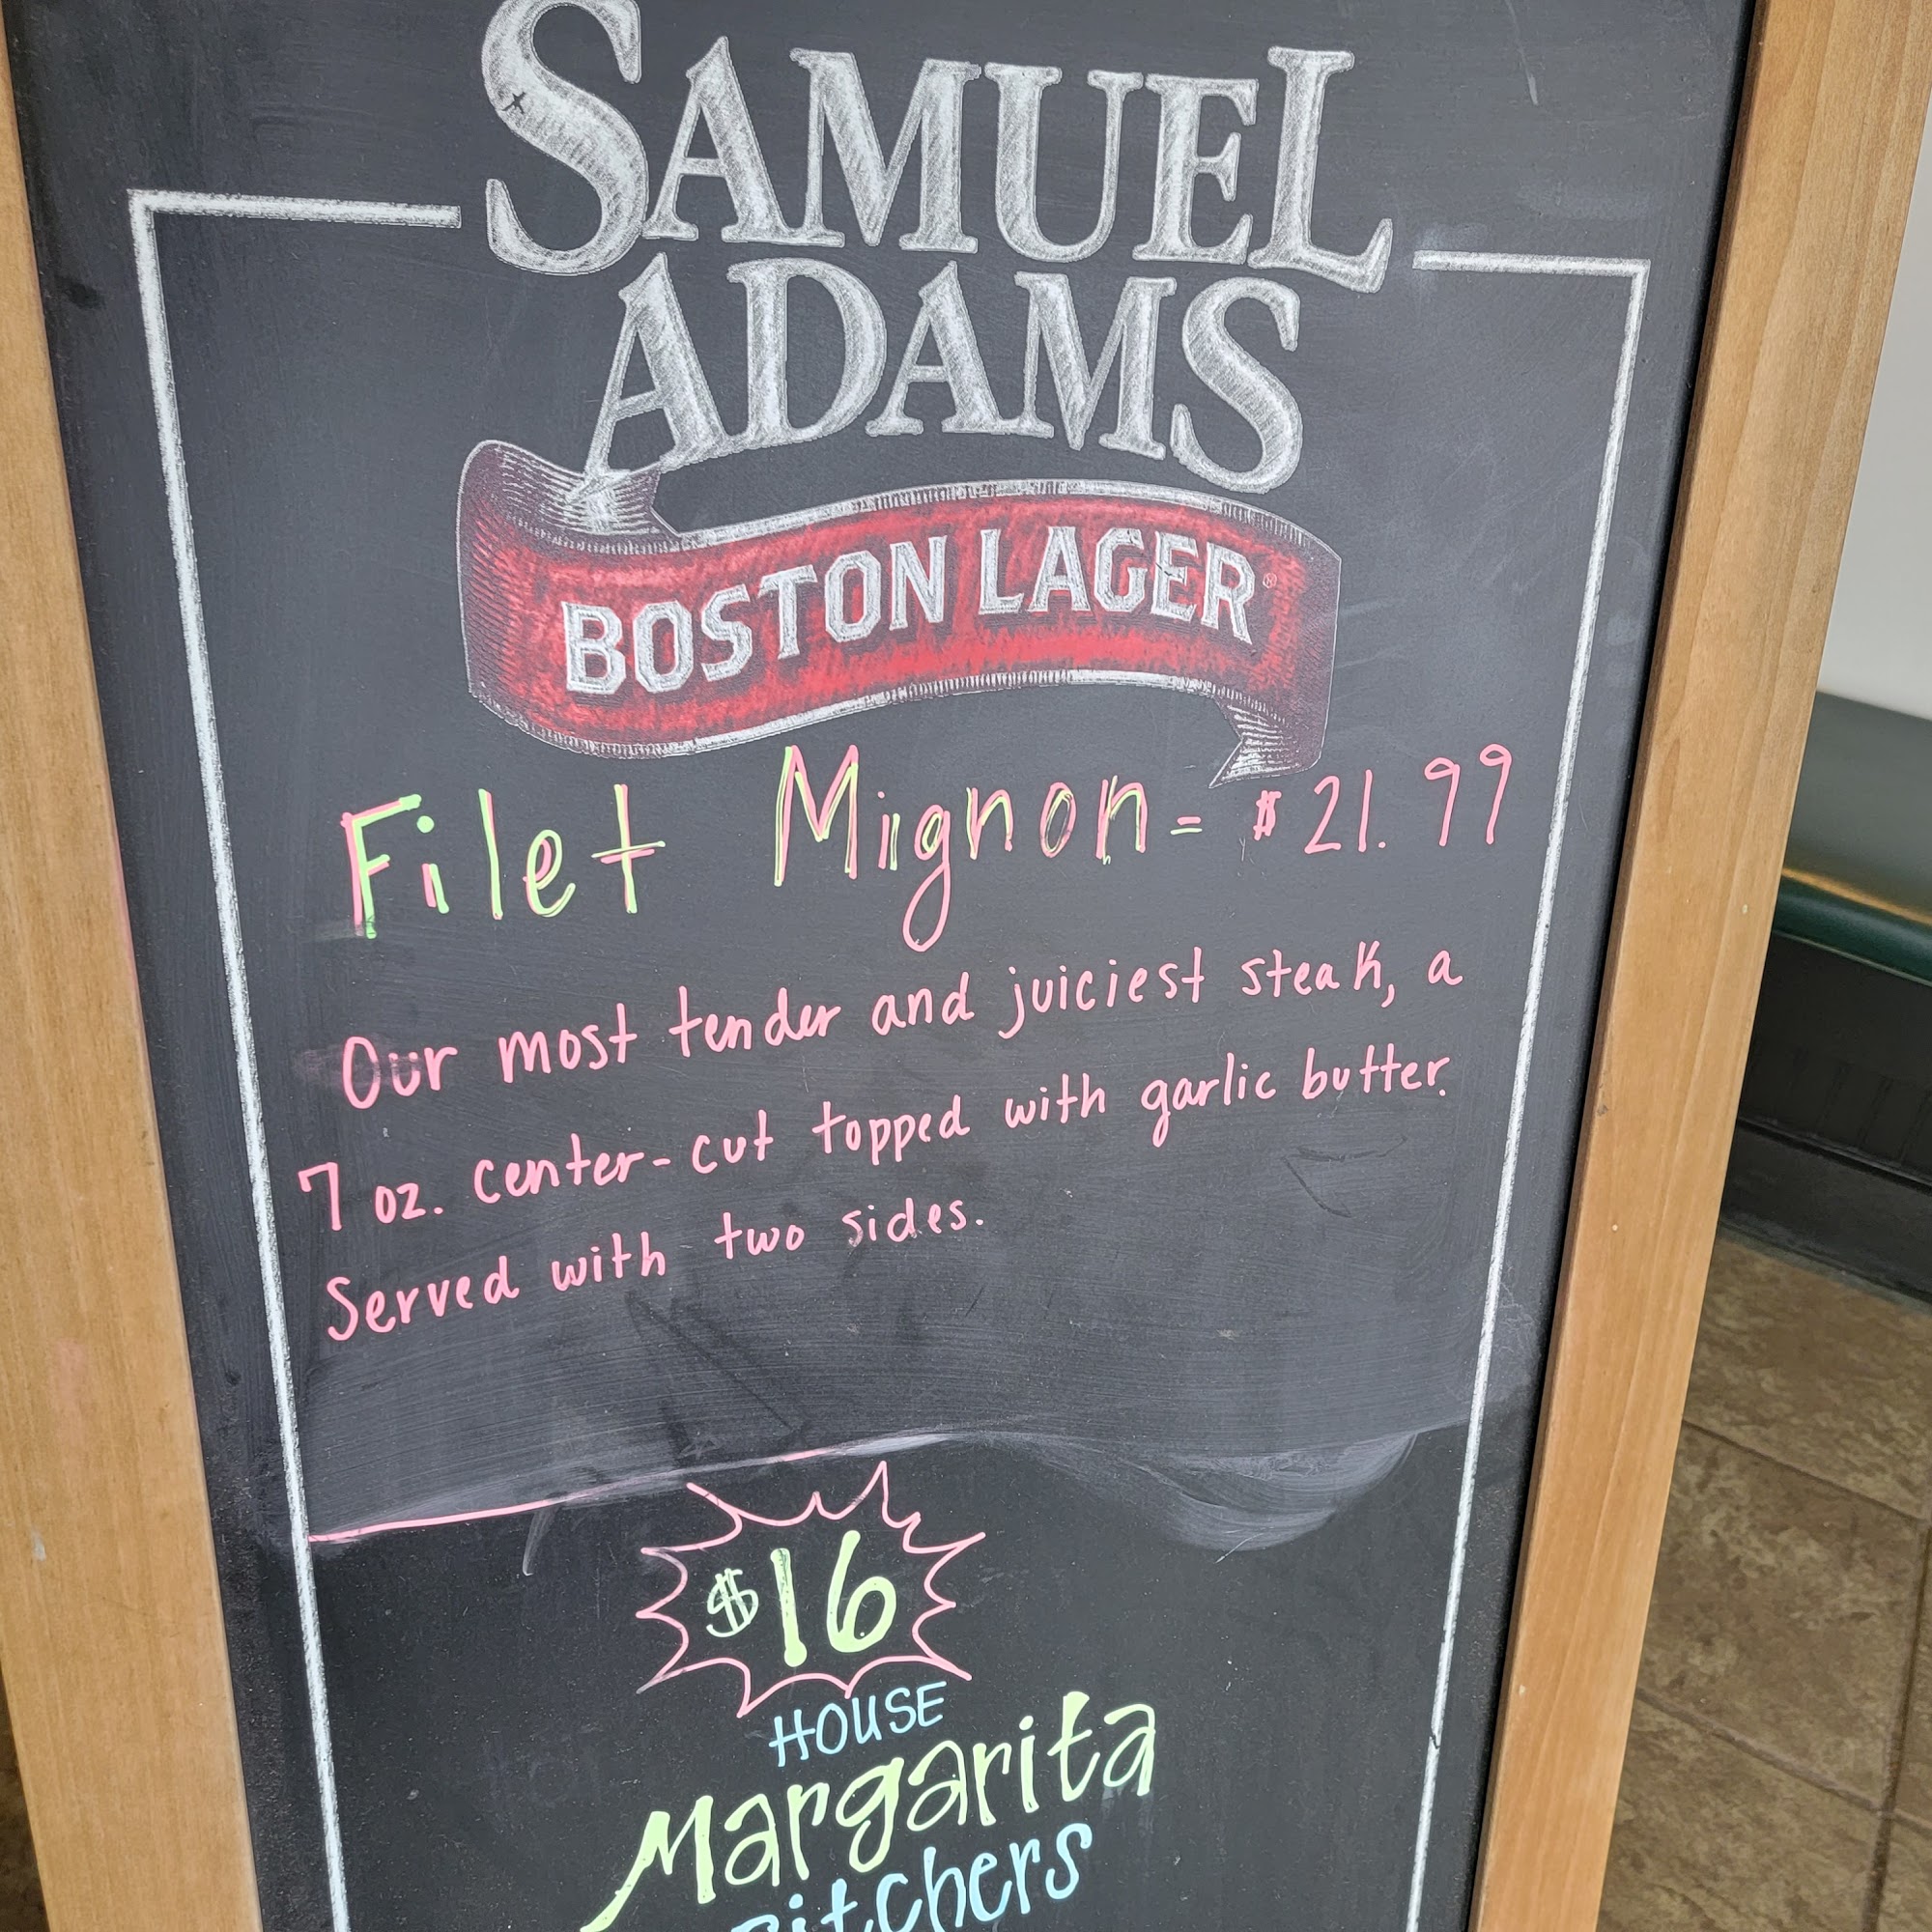 SAMUEL
ADAMS
BOSTON LAGER®
Filet Mignon = $21.99
Our most tender and juiciest steak, a
7 oz. center-cut topped with garlic butter.
Served with two sides.
$16
HOUSE
Margarita
Pitchers